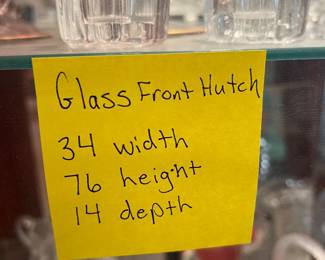 Glass Front Hutch
34 width
76 height
14 depth